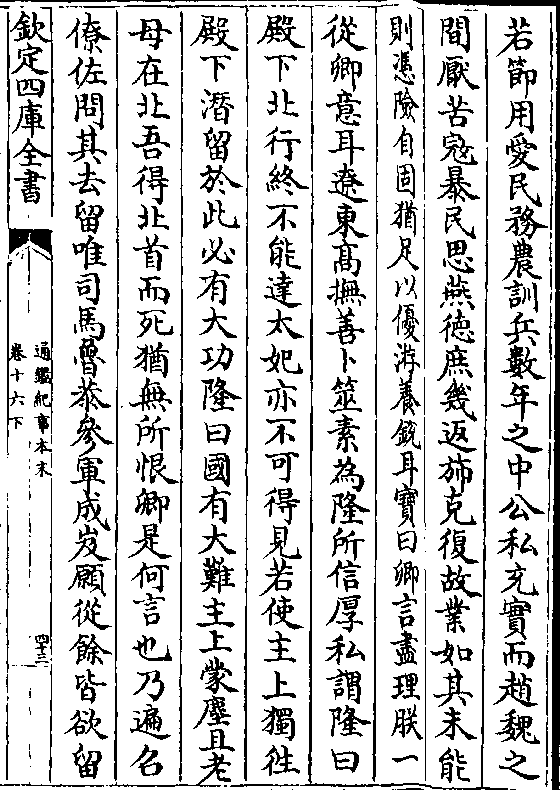 若節用愛民務農訓兵數年之中公私充實而趙魏之
間厭苦寇暴民思燕徳庶幾返斾克復故業如其未能
則憑險自固猶足以優游養鋭耳寶曰卿言盡理朕一
從卿意耳遼東髙撫善卜筮素為隆所信厚私謂隆曰
殿下北行終不能達太妃亦不可得見若使主上獨徃
殿下潛留於此必有大功隆曰國有大難主上蒙塵且老
母在北吾得北首而死猶無所恨卿是何言也乃遍召
僚佐問其去留唯司馬魯恭參軍成岌願從餘皆欲留
欽定四庫全書
通鑑紀事本末
卷十六下
四十三